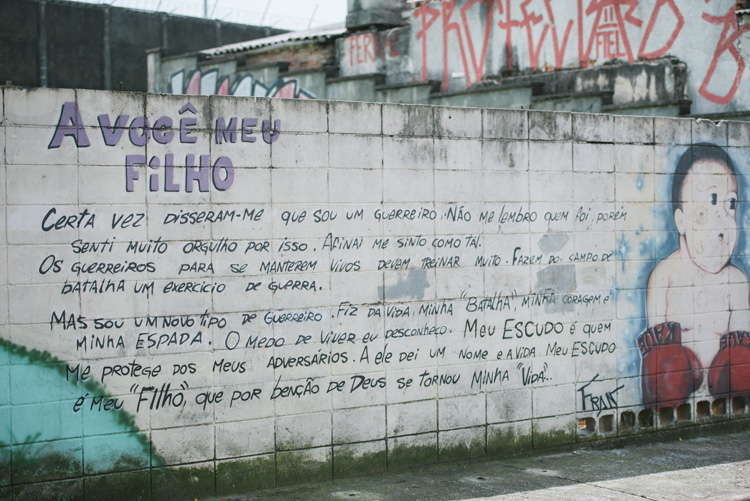 PROTENTADO
FIEL
FERR
A VOCÊ MEU
FILHO
CERTA VEZ DISSERAM-ME QUE SOU UM GUERREIRO. NÃO ME LEMBRO QUEM FOI, PORÉM
SENTI MUITO ORGULHO POR ISSO. AFINAL ME SINTO COMO TAL.
OS GUERREIROS PARA SE MANTEREM VIVOS DEVEM TREINAR MUITO. FAZEM DO CAMPO DE
BATALHA UM EXERCICIO DE GUERRA.
MAS SOU UM NOVO TIPO DE GUERREIRO. FIZ DA VIDA, MINHA "BATALHA", MINHA CORAGEM E
MINHA ESPADA. O MEDO DE VIVER EU DESCONHEÇO. MEU ESCUDO É QUEM
ME PROTEGE DOS MEUS ADVERSÁRIOS. A ELE DEI UM NOME E A VIDA. MEU ESCUDO
É MEU "FILHO", QUE POR BENÇÃO DE DEUS SE TORNOU MINHA "VIDA"..
FRAN